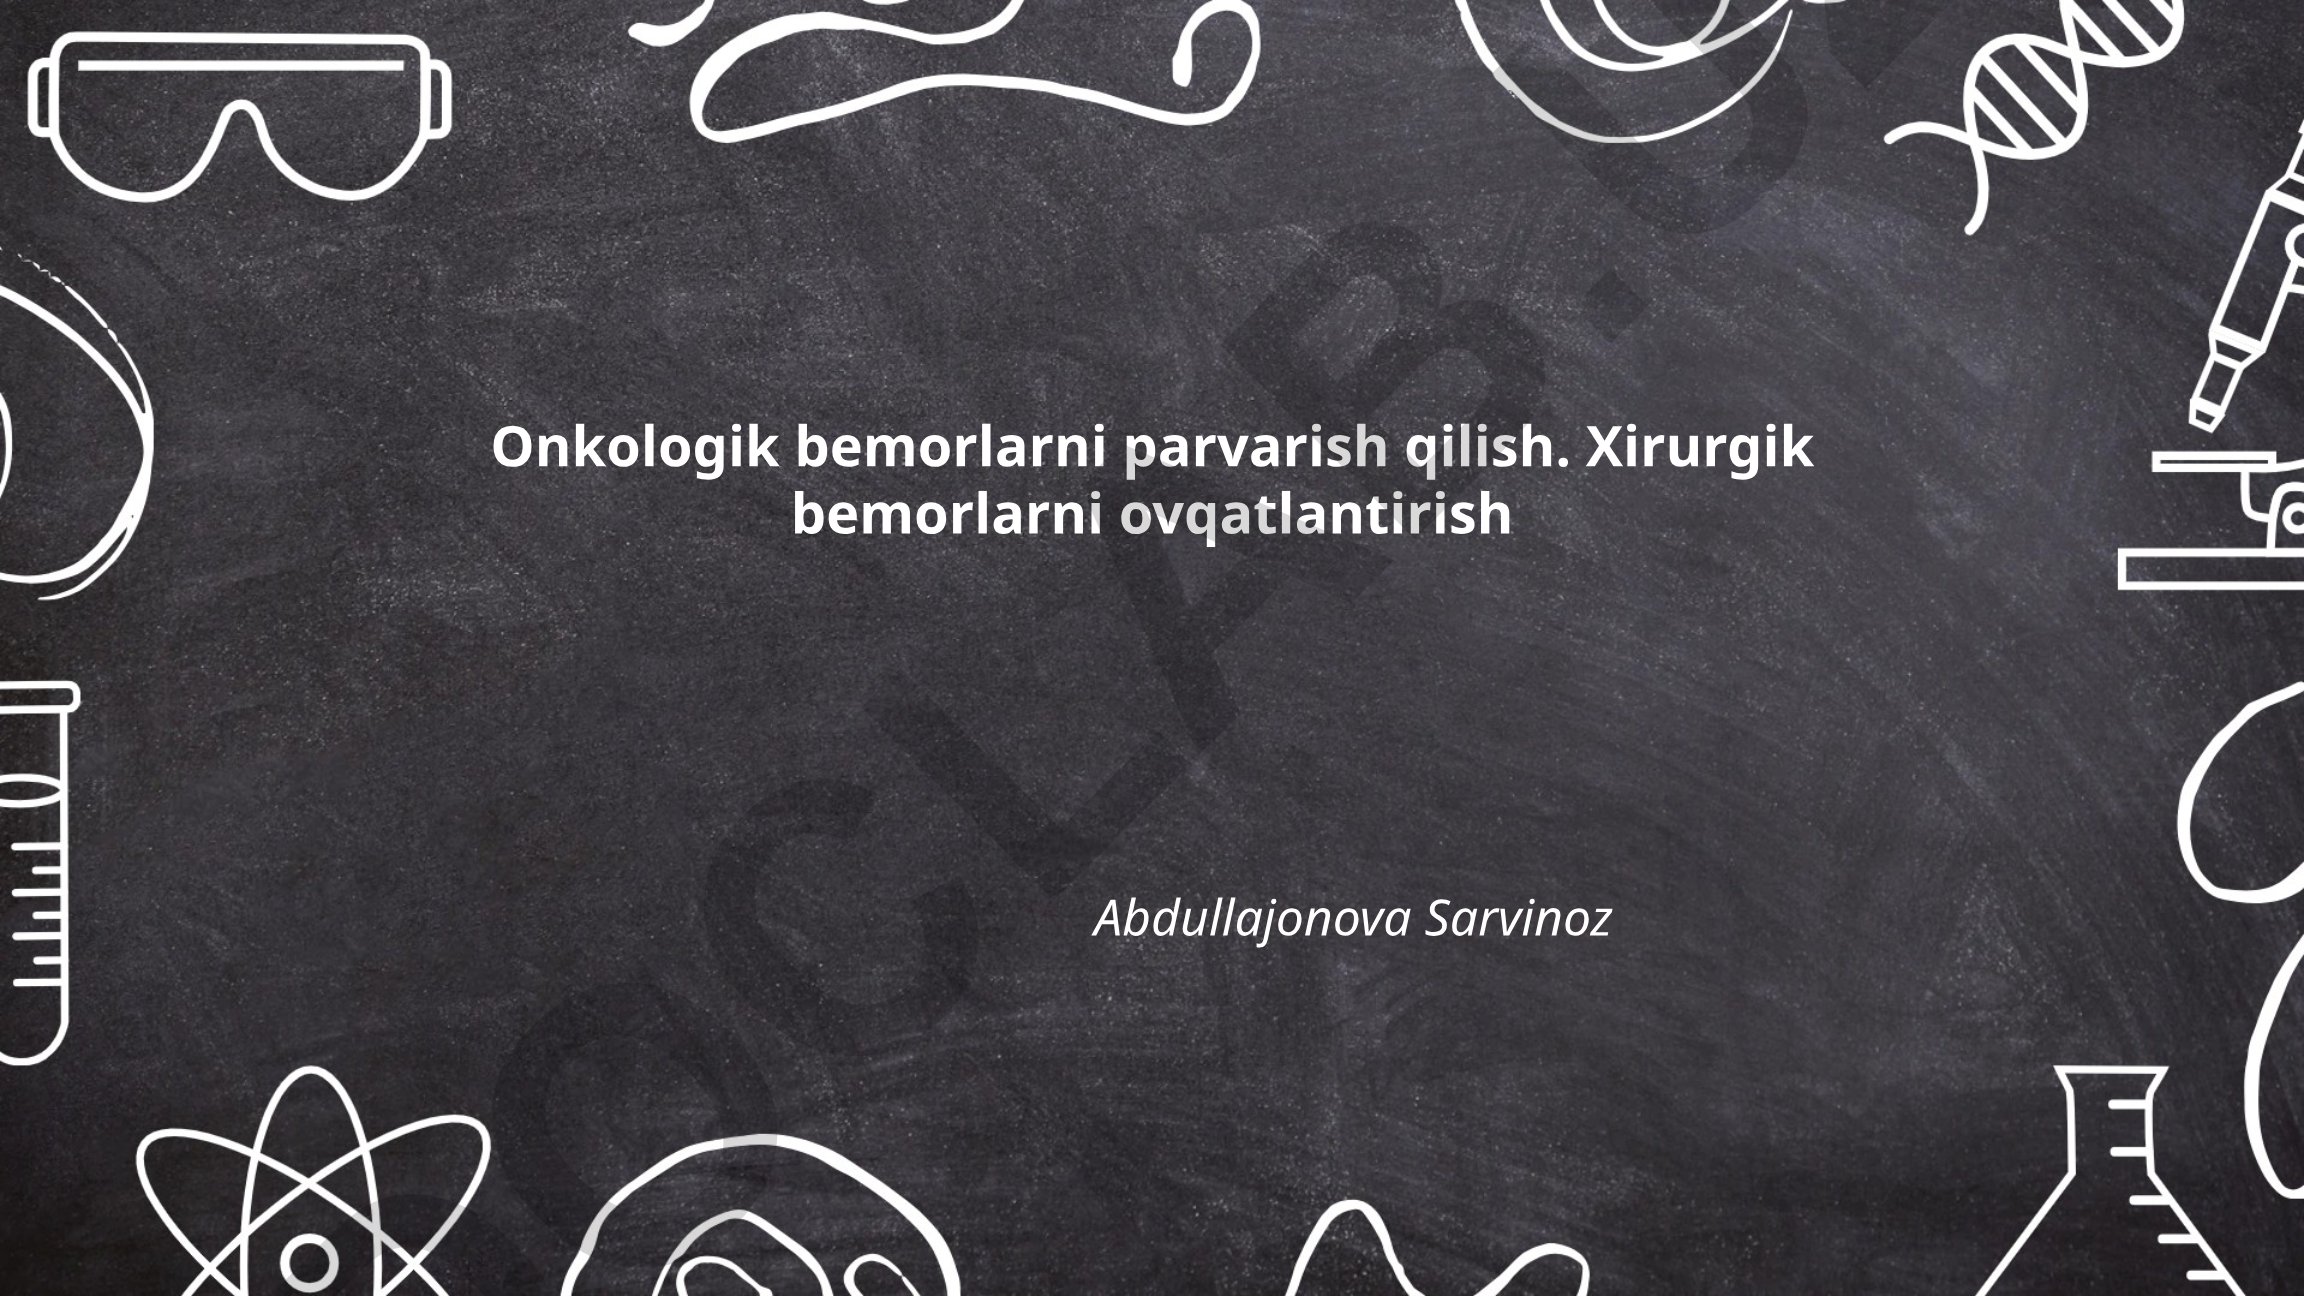 Onkologik bemorlarni parvarish qilish. Xirurgik
bemorlarni ovqatlantirish
Abdullajonova Sarvinoz